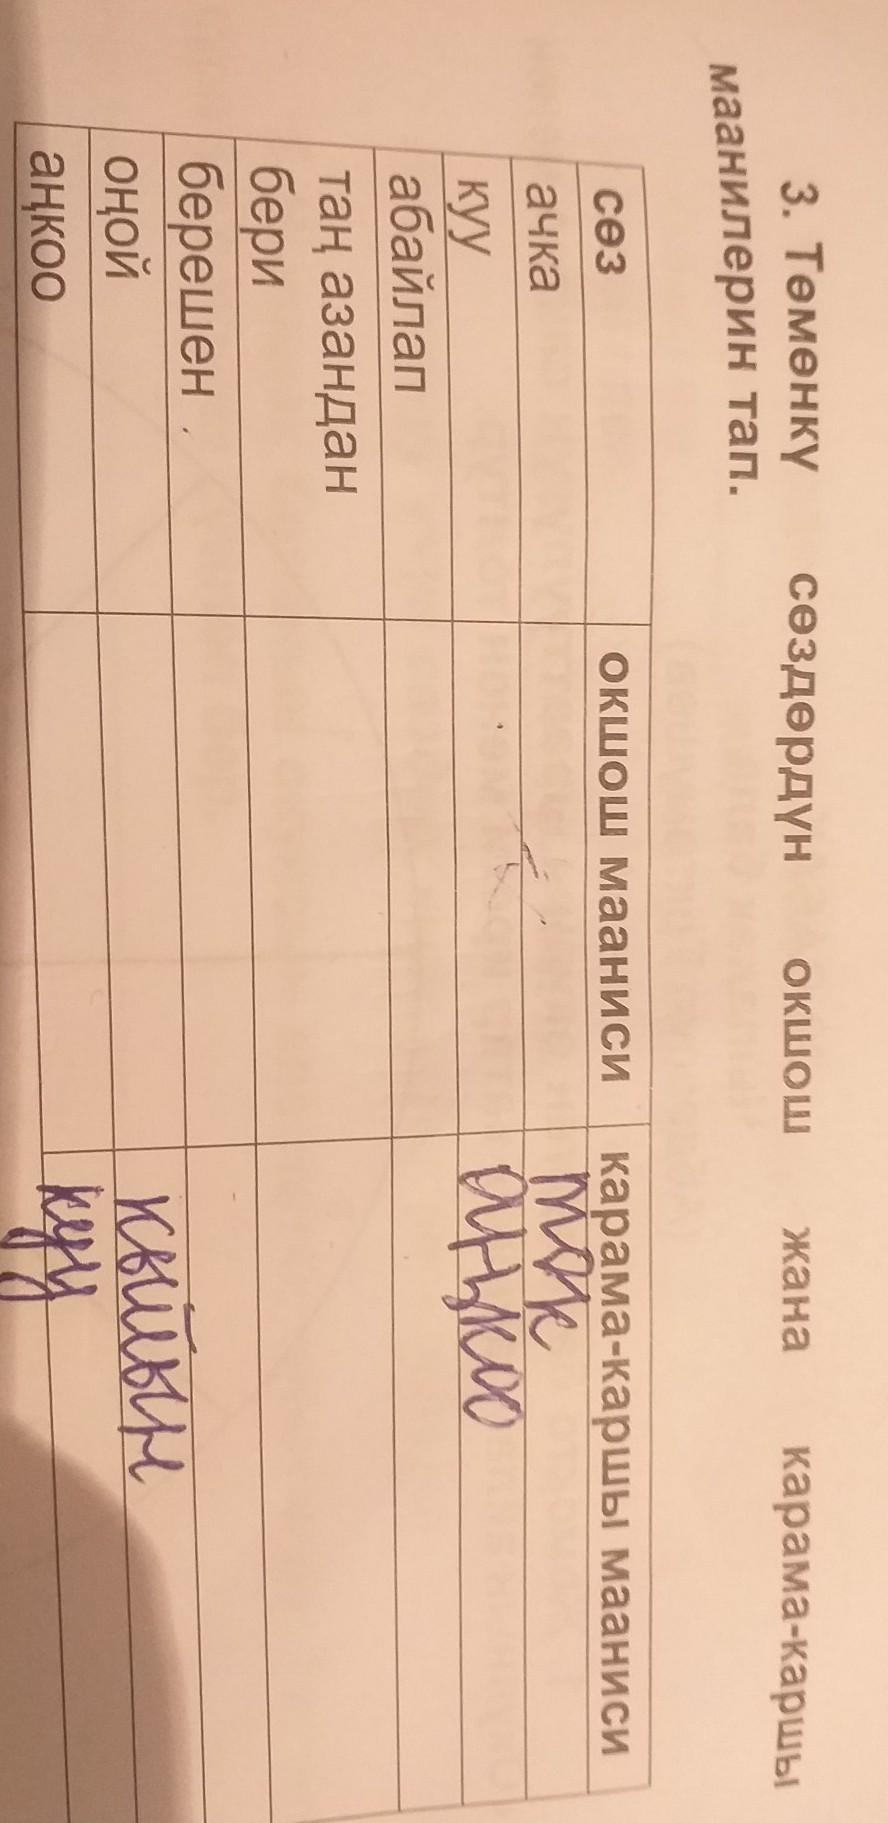 3. Төмөнкү сөздөрдүн окшош жана карама-каршы
маанилерин тап.
сөз окшош мааниси карама-каршы мааниси
ачка ток
куу аңкоо
абайлап
таң азандан
бери
берешен
оңой кыйын
аңкоо куу